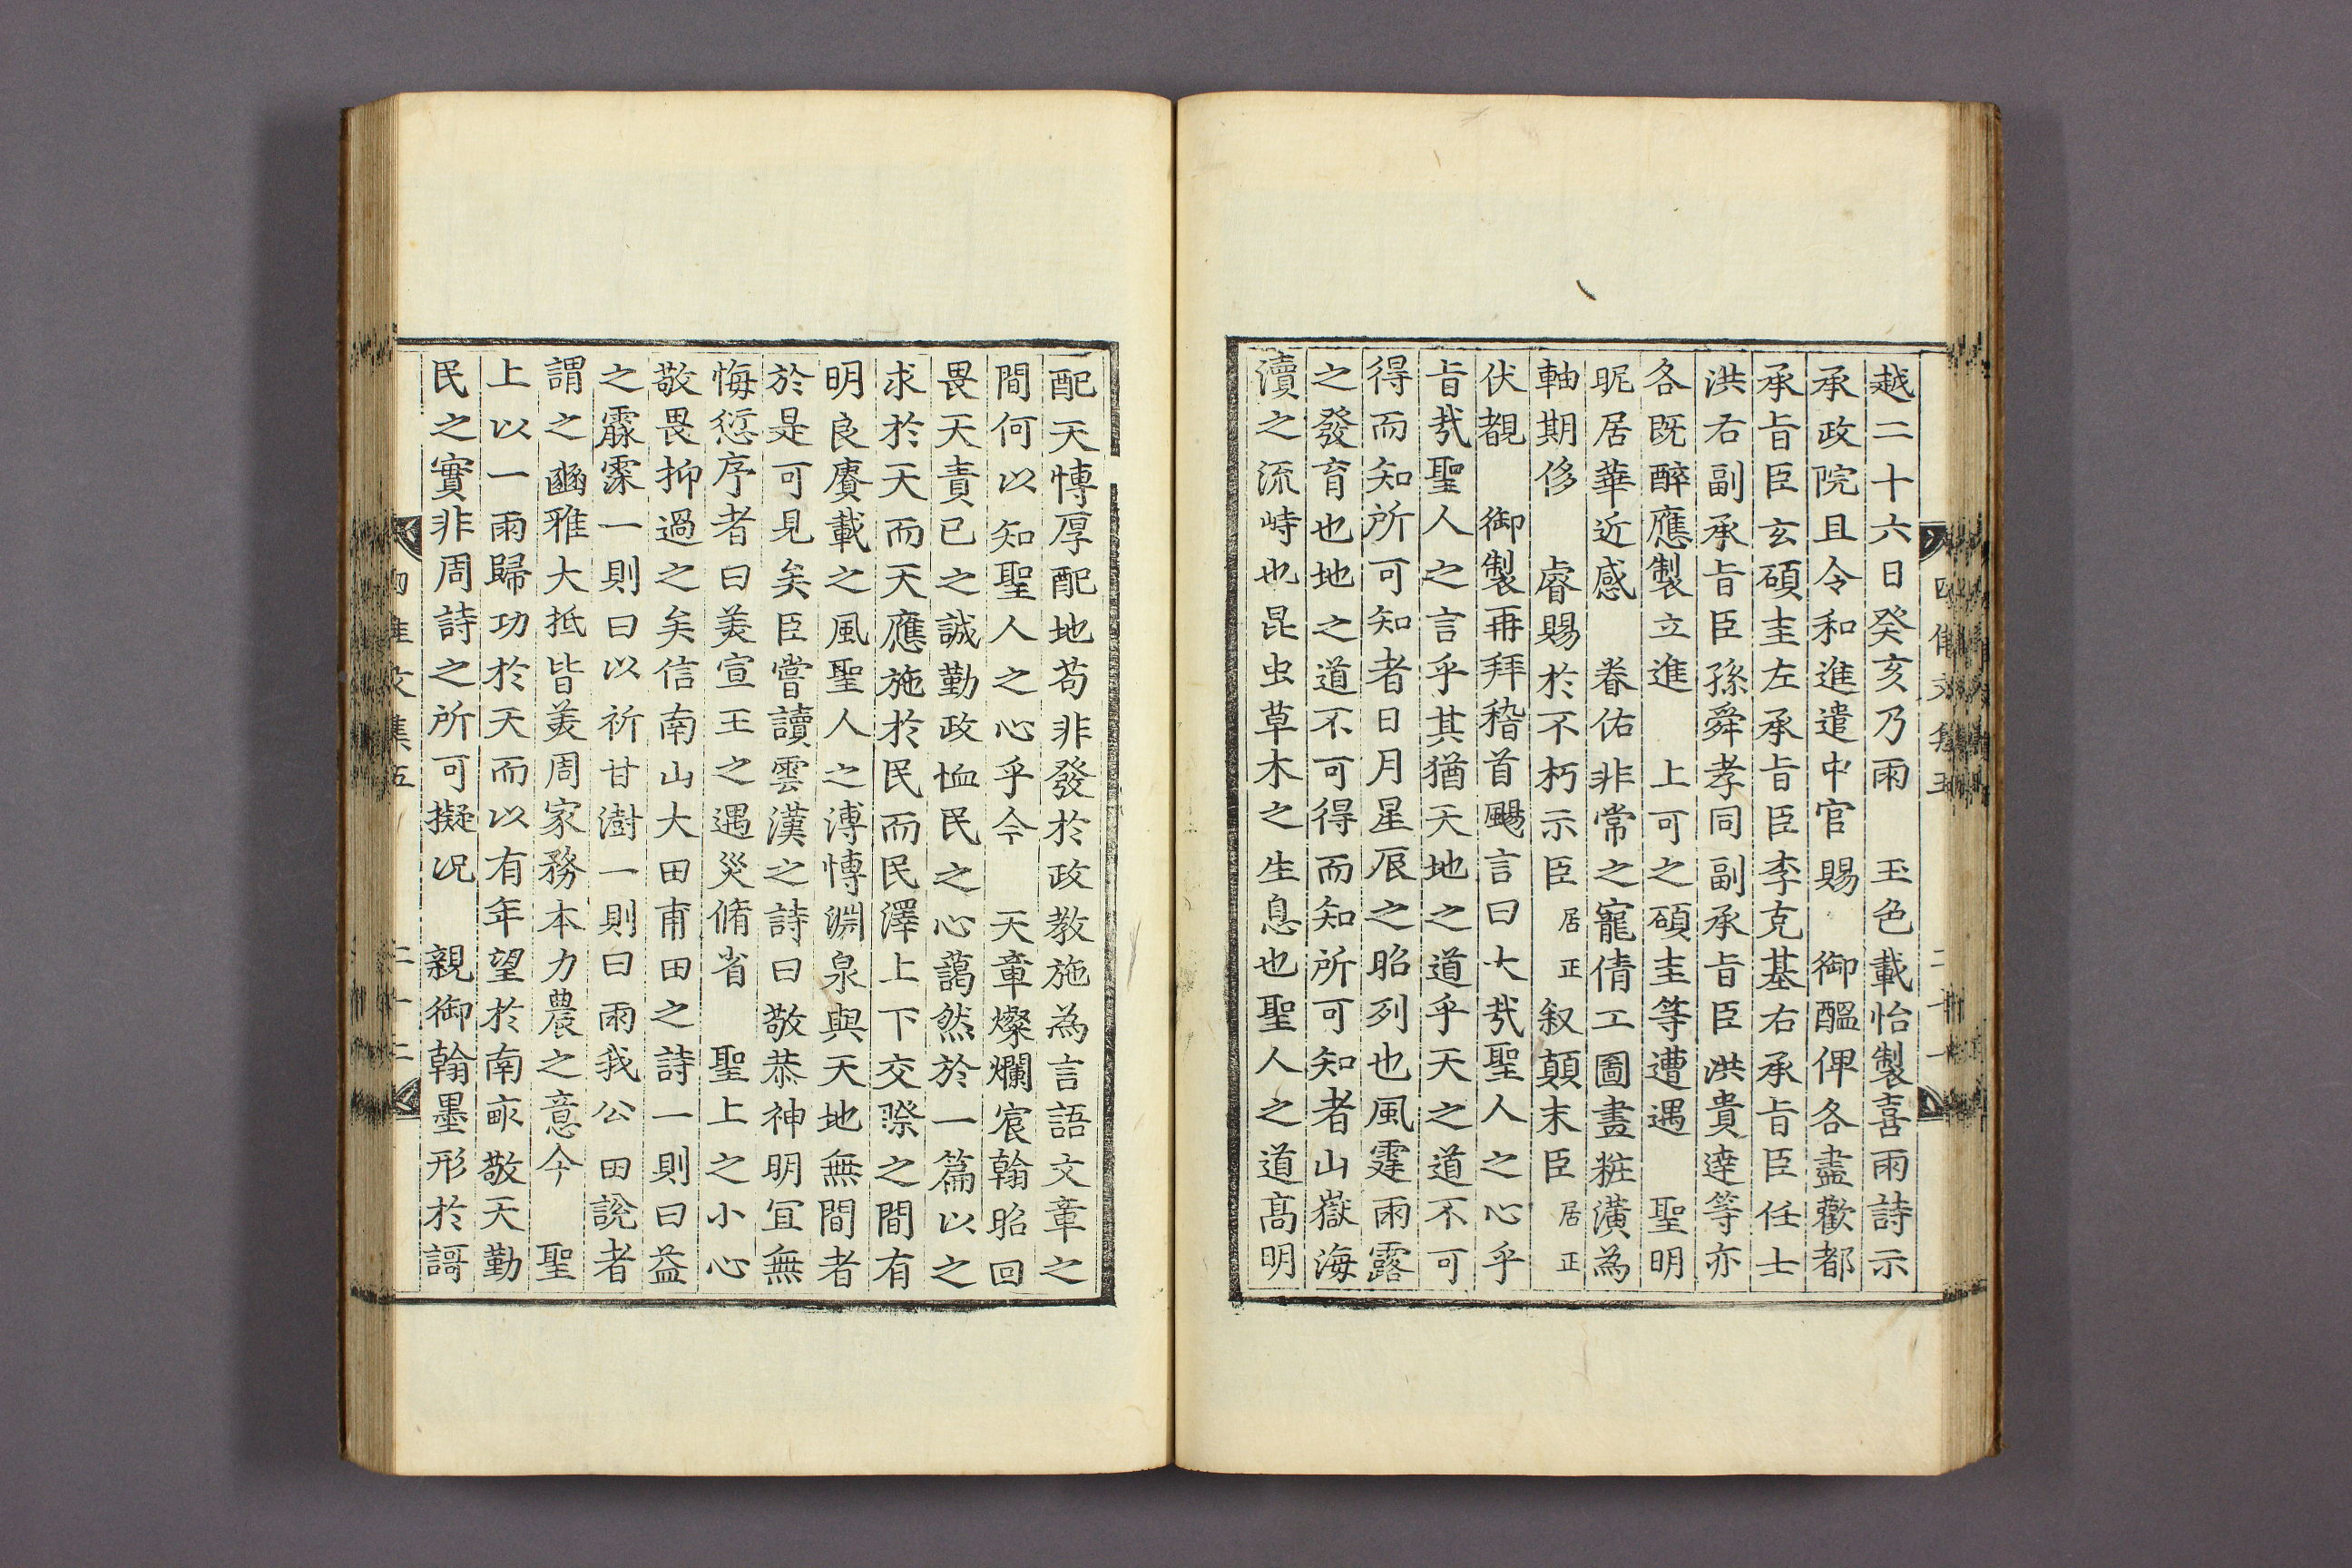 越二十六日癸亥乃雨　玉色載怡製喜雨詩示
承政院且令和進遣中官　賜　御醞俾各盡歡都
承旨臣玄碩圭左承旨臣李克基右承旨臣任士
洪右副承旨臣孫舜孝同副承旨臣洪貴達等亦
各既醉應製立進　上可之碩圭等遭遇　聖明
昵居華近感　眷佑非常之寵倩工圖畫粧潢為
軸期侈　睿賜於不朽示臣居正叙顛末臣居正
伏覩　御製再拜稽首颺言曰大㢤聖人之心乎
旨㢤聖人之言乎其猶天地之道乎天之道不可
得而知所可知者日月星辰之昭列也風霆雨露
之發育也地之道不可得而知所可知者山嶽海
瀆之流峙也昆虫草木之生息也聖人之道高明
配天愽厚配地苟非發於政教施為言語文章之
間何以知聖人之心乎今　天章燦爛宸翰昭回
畏天責已之誠勤政恤民之心藹然於一篇以之
求於天而天應施於民而民澤上下交際之間有
明良賡載之風聖人之溥愽淵泉與天地無間者
於是可見矣臣嘗讀雲漢之詩曰敬恭神明宜無
悔㤪序者曰美宣王之遇災脩省　聖上之小心
敬畏抑過之矣信南山大田甫田之詩一則曰益
之霡霂一則曰以祈甘澍一則曰雨我公田說者
謂之豳雅大抵皆美周家務本力農之意今　聖
上以一雨歸功於天而以有年望於南畝敬天勤
民之實非周詩之所可擬况　親御翰墨形於謌
文集五
二十二